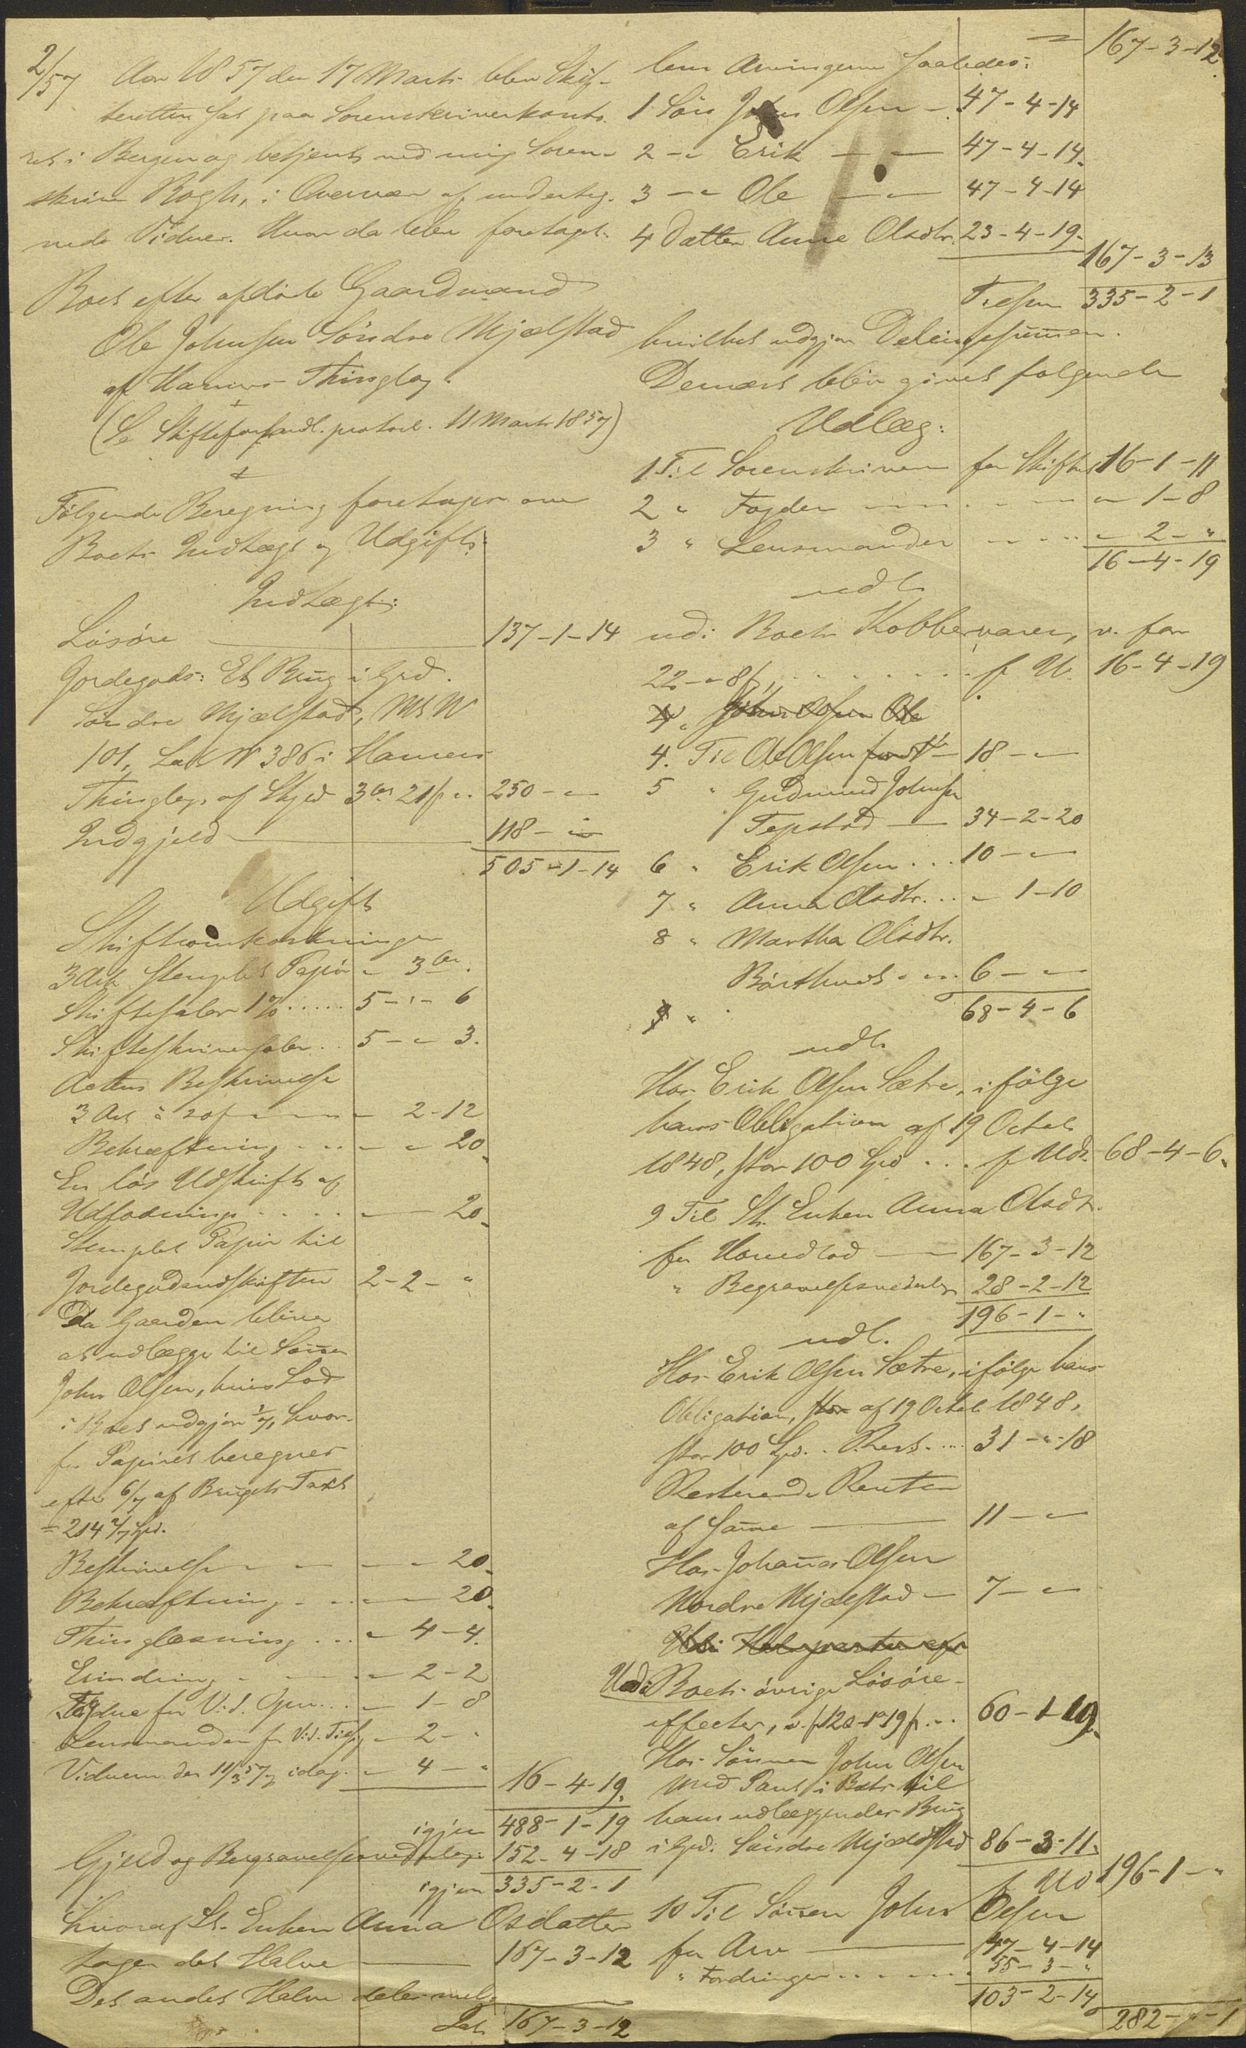 2/57 Aar 1857 den 17 Marts blev Skif-
teretten sat paa Sorenskriverkonto-
ret i Bergen og betjent med mig Soren-
skriver Rogh, i Overvær af underteg-
nede Vidner. Hvor da blev foretaget
Boet efter afdøde Gaardmand
Ole Johnsen Søndre Mjælstad
af Hammers Thinglag.
(Se Skifteforhandl. protocol. 11 Marts 1857)
Følgende Beregning foretages over
Boets Indtægt og Udgift:
Indtægt:
Løsøre 137-1-14
Jordegods: Et Brug i Grd.
Søndre Mjælstad, M N
101, Løb N 386 i Hammers
Thinglag, af Skyld 3 ort 21 s. 250 - "
Indgjeld 118 - "
505-1-14
Udgift
Skifteomkostninger
3 Ark Stemplet Papir " 3 "
Skiftesaler 1% 5 - " - 6
Skifteskriversaler 5 - " 3.
Acttens Beskrivelse
3 Ark à 20 s " 2-12
Bekræftning " " 20
En løs Udskrift af
Udlodning 20
Stemplet Papir til
Jordegodsudskriften 2-2-"
Da Gaarden bliver
at udlægge til Sønnen
John Olsen, hvis Lod
i Boet udgjør 1/7, hvor-
for Papiret beregnes
efter 6/7 af Brugets Taxt
= 214 2/7 Spd.
Beskrivelse " - " 20
Bekræftning " - " 20
Thinglæsning " 4-4
Erindring " 2-2
Fogden for V. S. Gjen. " 1-8
Lensmanden for V. S. Tils. " 2-"
Vidnerne den 11/3 57 og idag " 4-" 16-4-19
igjen 488-1-19
Gjeld og Begravelsesvederlag 152-4-18
igjen 335-2-1
hvoraf St. Enken Anna Osdatter
tager det Halve 167-3-12
Det andet Halve deler mel-
Lat. 167-3-12
167-3-12
lem Arvingerne saaledes:
1 Søn John Olsen 47-4-14
2 - " Erik 47-4-14
3 - " Ole 47-4-14
4 Datter Anne Olsdtr. 23-4-19
167-3-13
Tilsm 335-2-1
hvilket udgjør Delingssummen.
Dernæst blev gjort følgende
Udlæg:
1 Til Sorenskriveren for Skiftet 16-1-11
2 " Fogden " 1-8
3 " Lensmanden " 2-"
16-4-19
udl.
udi Boets Kobbervarer, v. for
22 - " 8 s, f U. 16-4-19
4. Til Ole Olsen 18-"
5 " Gudmund Johnsen
Tepstad 34-2-20
6 " Erik Olsen 10-"
7 " Anna Olsdtr. " 1-10
8 " Martha Olsdtr.
Børthveit 6-"
68-4-6
udl.
Hos Erik Olsen Sætre, i følge
hans Obligation af 19 Octob.
1848, stor 100 Spd f Udl. 68-4-6
9 Til St. Enken Anna Olsdtr.
for Hovedlod 167-3-12
" Begravelsesvederlag 28-2-12
196-1-"
udl.
Hos Erik Olsen Sætre, i følge hans
Obligation, af 19 Octob. 1848,
stor 100 Spd. Rest 31-"-18
Resterende Renter
af samme 11-"
Hos Johannes Olsen
Nordre Mjælstad 7-"
Udi Boets øvrige Løsøre-
effecter, v. f 120-1-19 s 60-1-19
Hos Sønnen John Olsen
med Pant i Boets til
ham udlæggendes Brug
i Grd. Søndre Mjælstad 86-3-11
f Ud 196-1-"
10 Til Sønnen John Olsen
for Arv 47-4-14
" Fordringer 55-3-"
103-2-14
282-"-1